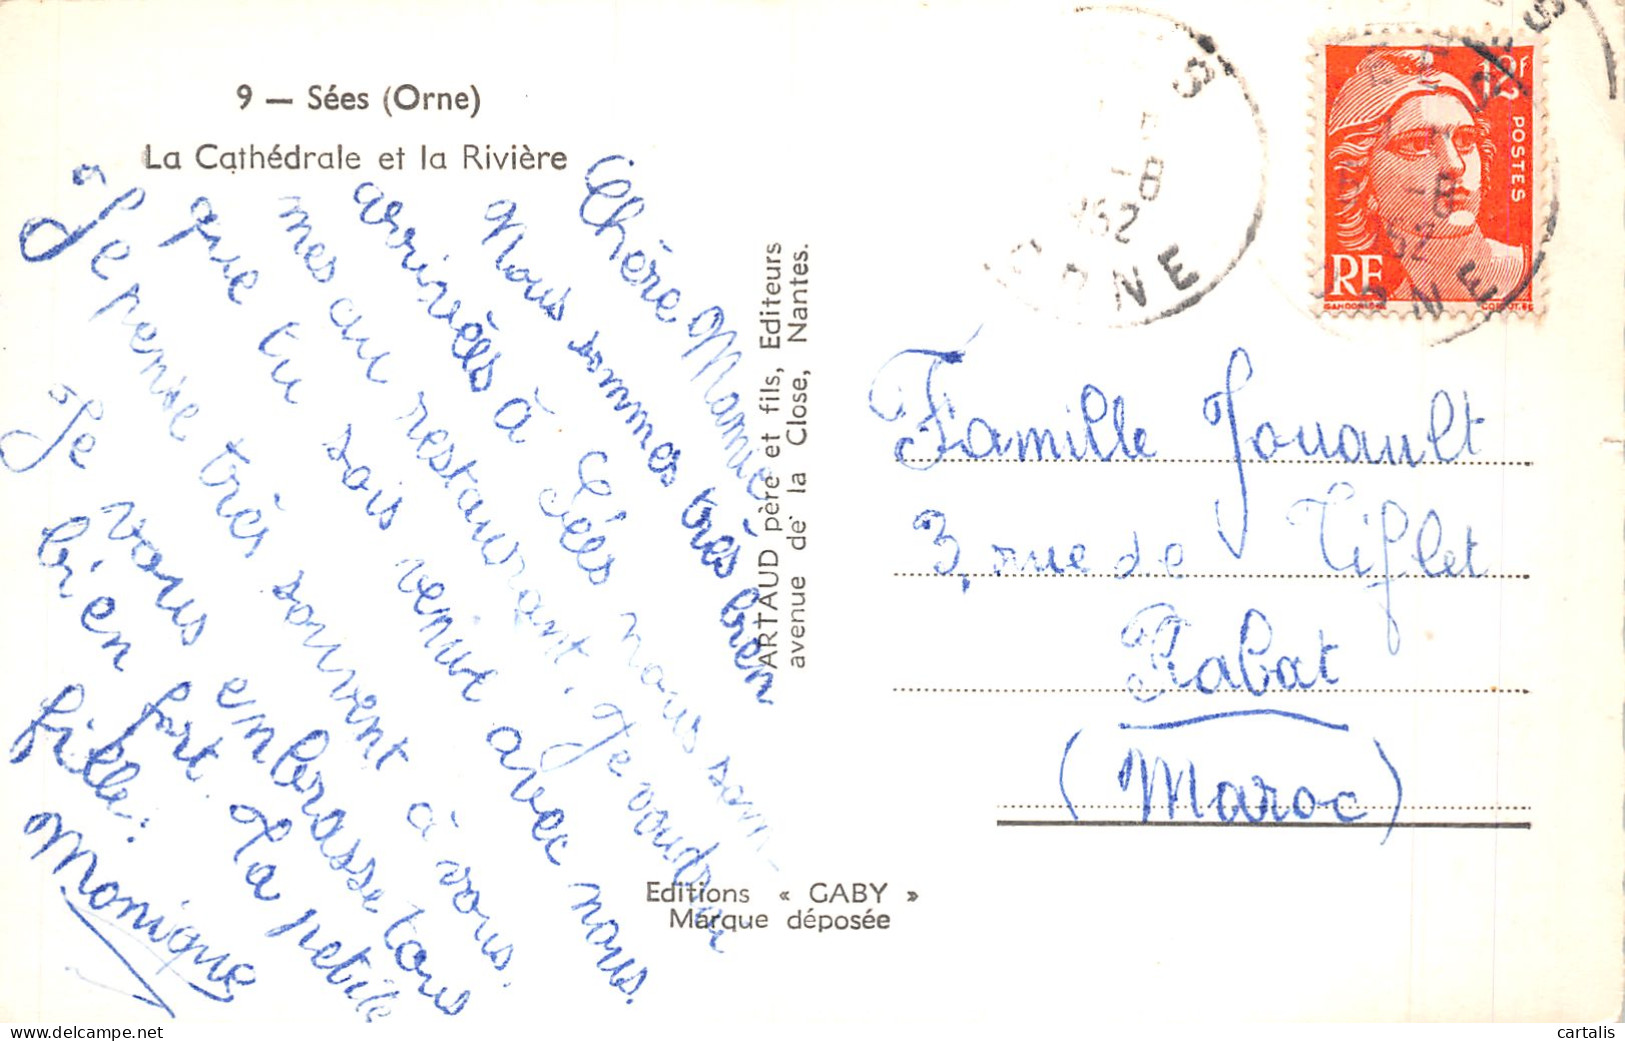 9 — Sées (Orne)
La Cathédrale et la Rivière
Chère Mamie
Nous sommes très bien
arrivées à Sées nous som-
mes au restaurant. Je voudrai
que tu sois venue avec nous.
Je pense très souvent à vous.
Je vous embrasse tous
bien fort. Ta petite
fille:
Monique
ARTAUD père et fils, Editeurs
avenue de la Close, Nantes.
Editions « GABY »
Marque déposée
ORNE
12F
POSTES
RF
ORNE
Famille Jouault
3, rue de Tiflet
Rabat
(Maroc)
cartalis